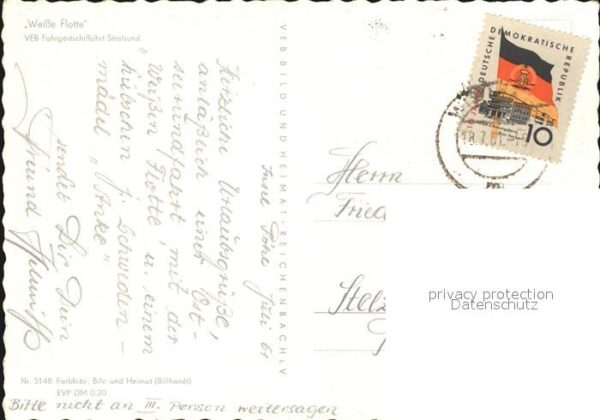 „Weiße Flotte"
VEB Fahrgastschiffahrt Stralsund
Insel Poel Juli 61
Herzliche Urlaubsgrüße,
anläßlich einer Ost-
seerundfahrt mit der
„Weißen Flotte" u. einem
hübschen j. Schweden-
mädel „Anke"
sendet Dir Dein
Freund
VEB BILD UND HEIMAT REICHENBACH I. V.
DEUTSCHE DEMOKRATISCHE REPUBLIK
10
18.7.61
Herrn
Fried
Stelz
privacy protection
Datenschutz
Nr. 5148 Farbfoto: Bild und Heimat (Billhardt)
EVP DM 0,20
Bitte nicht an III. Person weitersagen